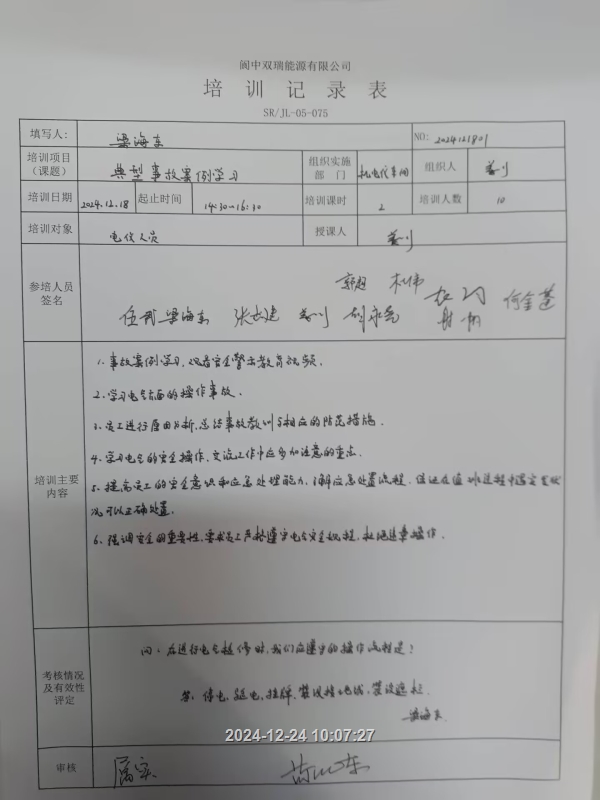 阆中双瑞能源有限公司
培训记录表
SR/JL-05-075
填写人: 梁海东 NO: 2024121801
培训项目（课题） 典型事故案例学习 组织实施部门 机电仪车间 组织人
培训日期 2024.12.18 起止时间 14:30-16:30 培训课时 2 培训人数 10
培训对象 电仪人员 授课人
参培人员签名
郭超 何金莲
梁海东
培训主要内容
1、事故案例学习、观看安全警示教育视频。
2、学习电气方面的操作事故。
3、员工进行原因分析、总结事故教训与相应的防范措施。
4、学习电气的安全操作、交流工作中应多加注意的重点。
5、提高员工的安全意识和应急处理能力，了解应急处置流程，保证在值班过程中遇突发状
况可以正确处置。
6、强调安全的重要性，要求员工严格遵守电气安全规程，杜绝违章操作。
考核情况及有效性评定
问：在进行电气检修时，我们应遵守的操作流程是？
答：停电、验电、挂牌、装设接地线、装设遮栏。
梁海东
2024-12-24 10:07:27
审核 属实